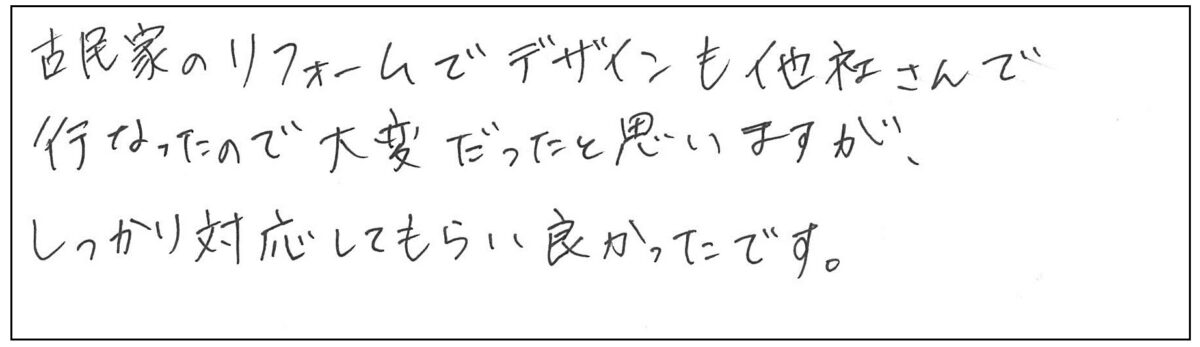 古民家のリフォームでデザインも他社さんで
行なったので大変だったと思いますが、
しっかり対応してもらい良かったです。